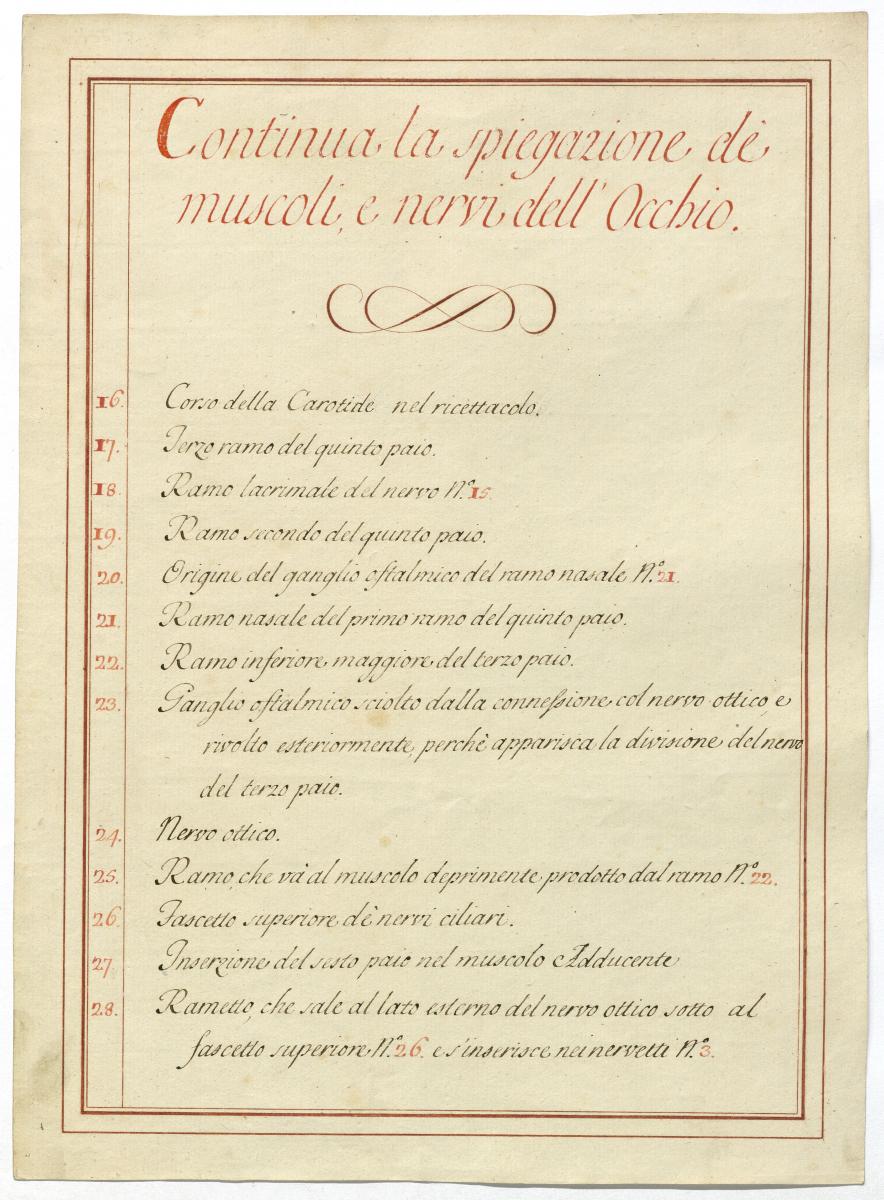 Continua la spiegazione dè
muscoli, e nervi dell' Occhio.
16. Corso della Carotide nel ricettacolo.
17. Terzo ramo del quinto paio.
18. Ramo lacrimale del nervo N.º 15.
19. Ramo secondo del quinto paio.
20. Origine del ganglio oftalmico del ramo nasale N.º 21.
21. Ramo nasale del primo ramo del quinto paio.
22. Ramo inferiore maggiore del terzo paio.
23. Ganglio oftalmico sciolto dalla conneſsione col nervo ottico, e
rivolto esteriormente, perchè apparisca la divisione del nervo
del terzo paio.
24. Nervo ottico.
25. Ramo, che và al muscolo deprimente prodotto dal ramo N.º 22.
26. Fascetto superiore dè nervi ciliari.
27. Inserzione del sesto paio nel muscolo Adducente
28. Rametto, che sale al lato esterno del nervo ottico sotto al
fascetto superiore N.º 26. e s'inserisce nei nervetti N.º 3.